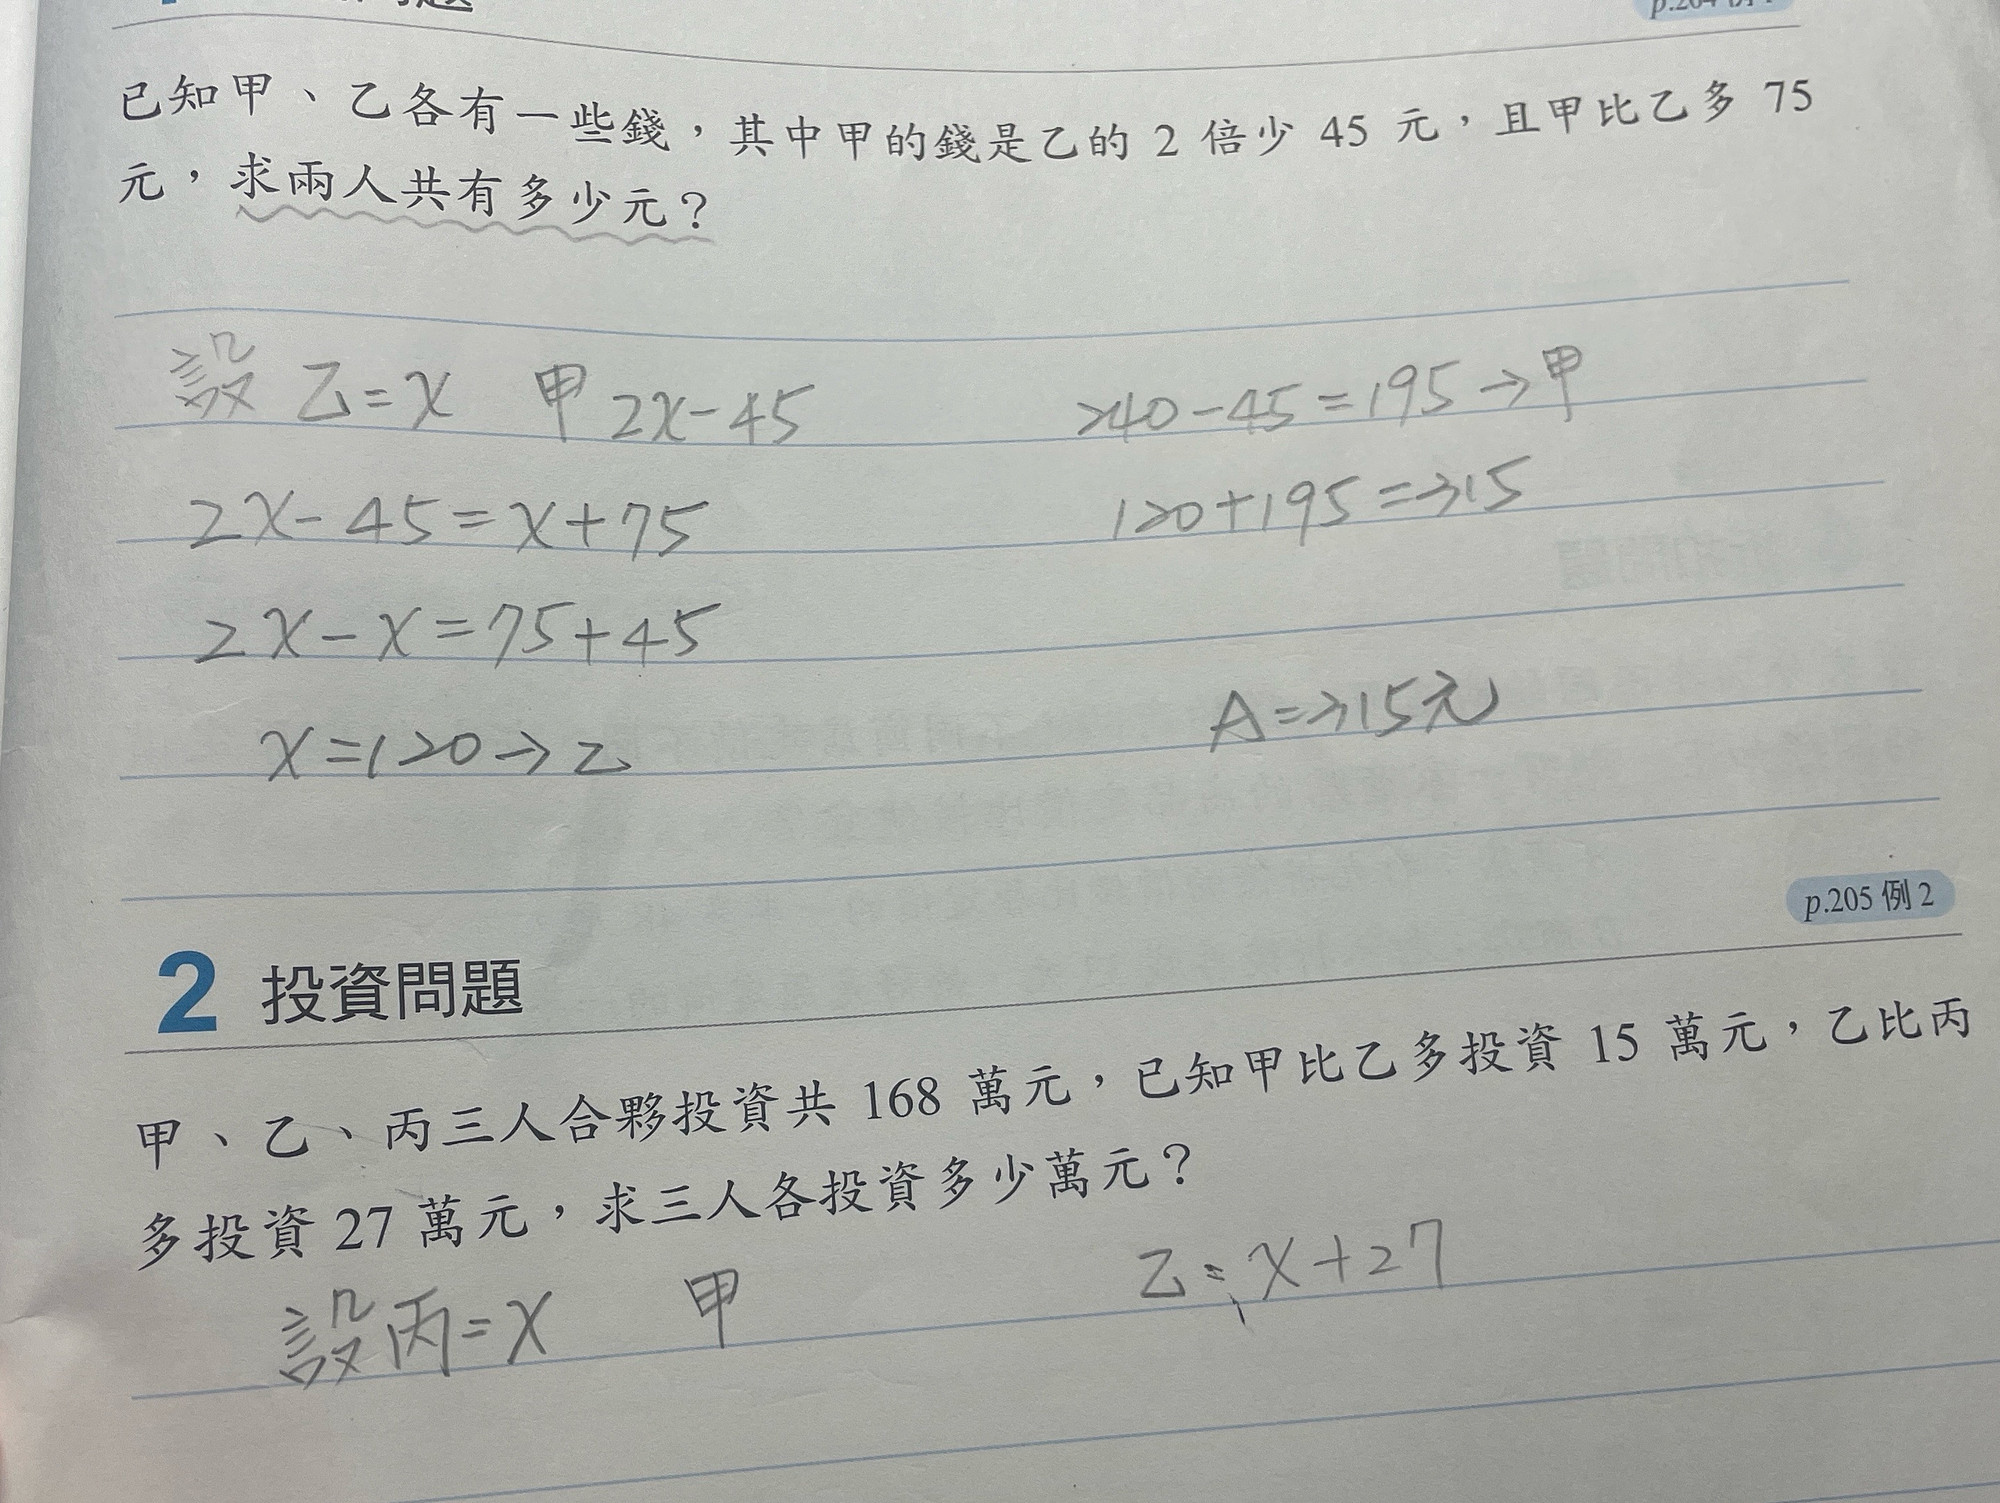 問題
p.204 例1
已知甲、乙各有一些錢，其中甲的錢是乙的 2 倍少 45 元，且甲比乙多 75
元，求兩人共有多少元？
設 乙=x 甲 2x-45
2x-45=x+75
2x-x=75+45
x=120→乙
240-45=195→甲
120+195=315
A=315元
p.205 例2
2 投資問題
甲、乙、丙三人合夥投資共 168 萬元，已知甲比乙多投資 15 萬元，乙比丙
多投資 27 萬元，求三人各投資多少萬元？
設丙=x 甲 乙=x+27